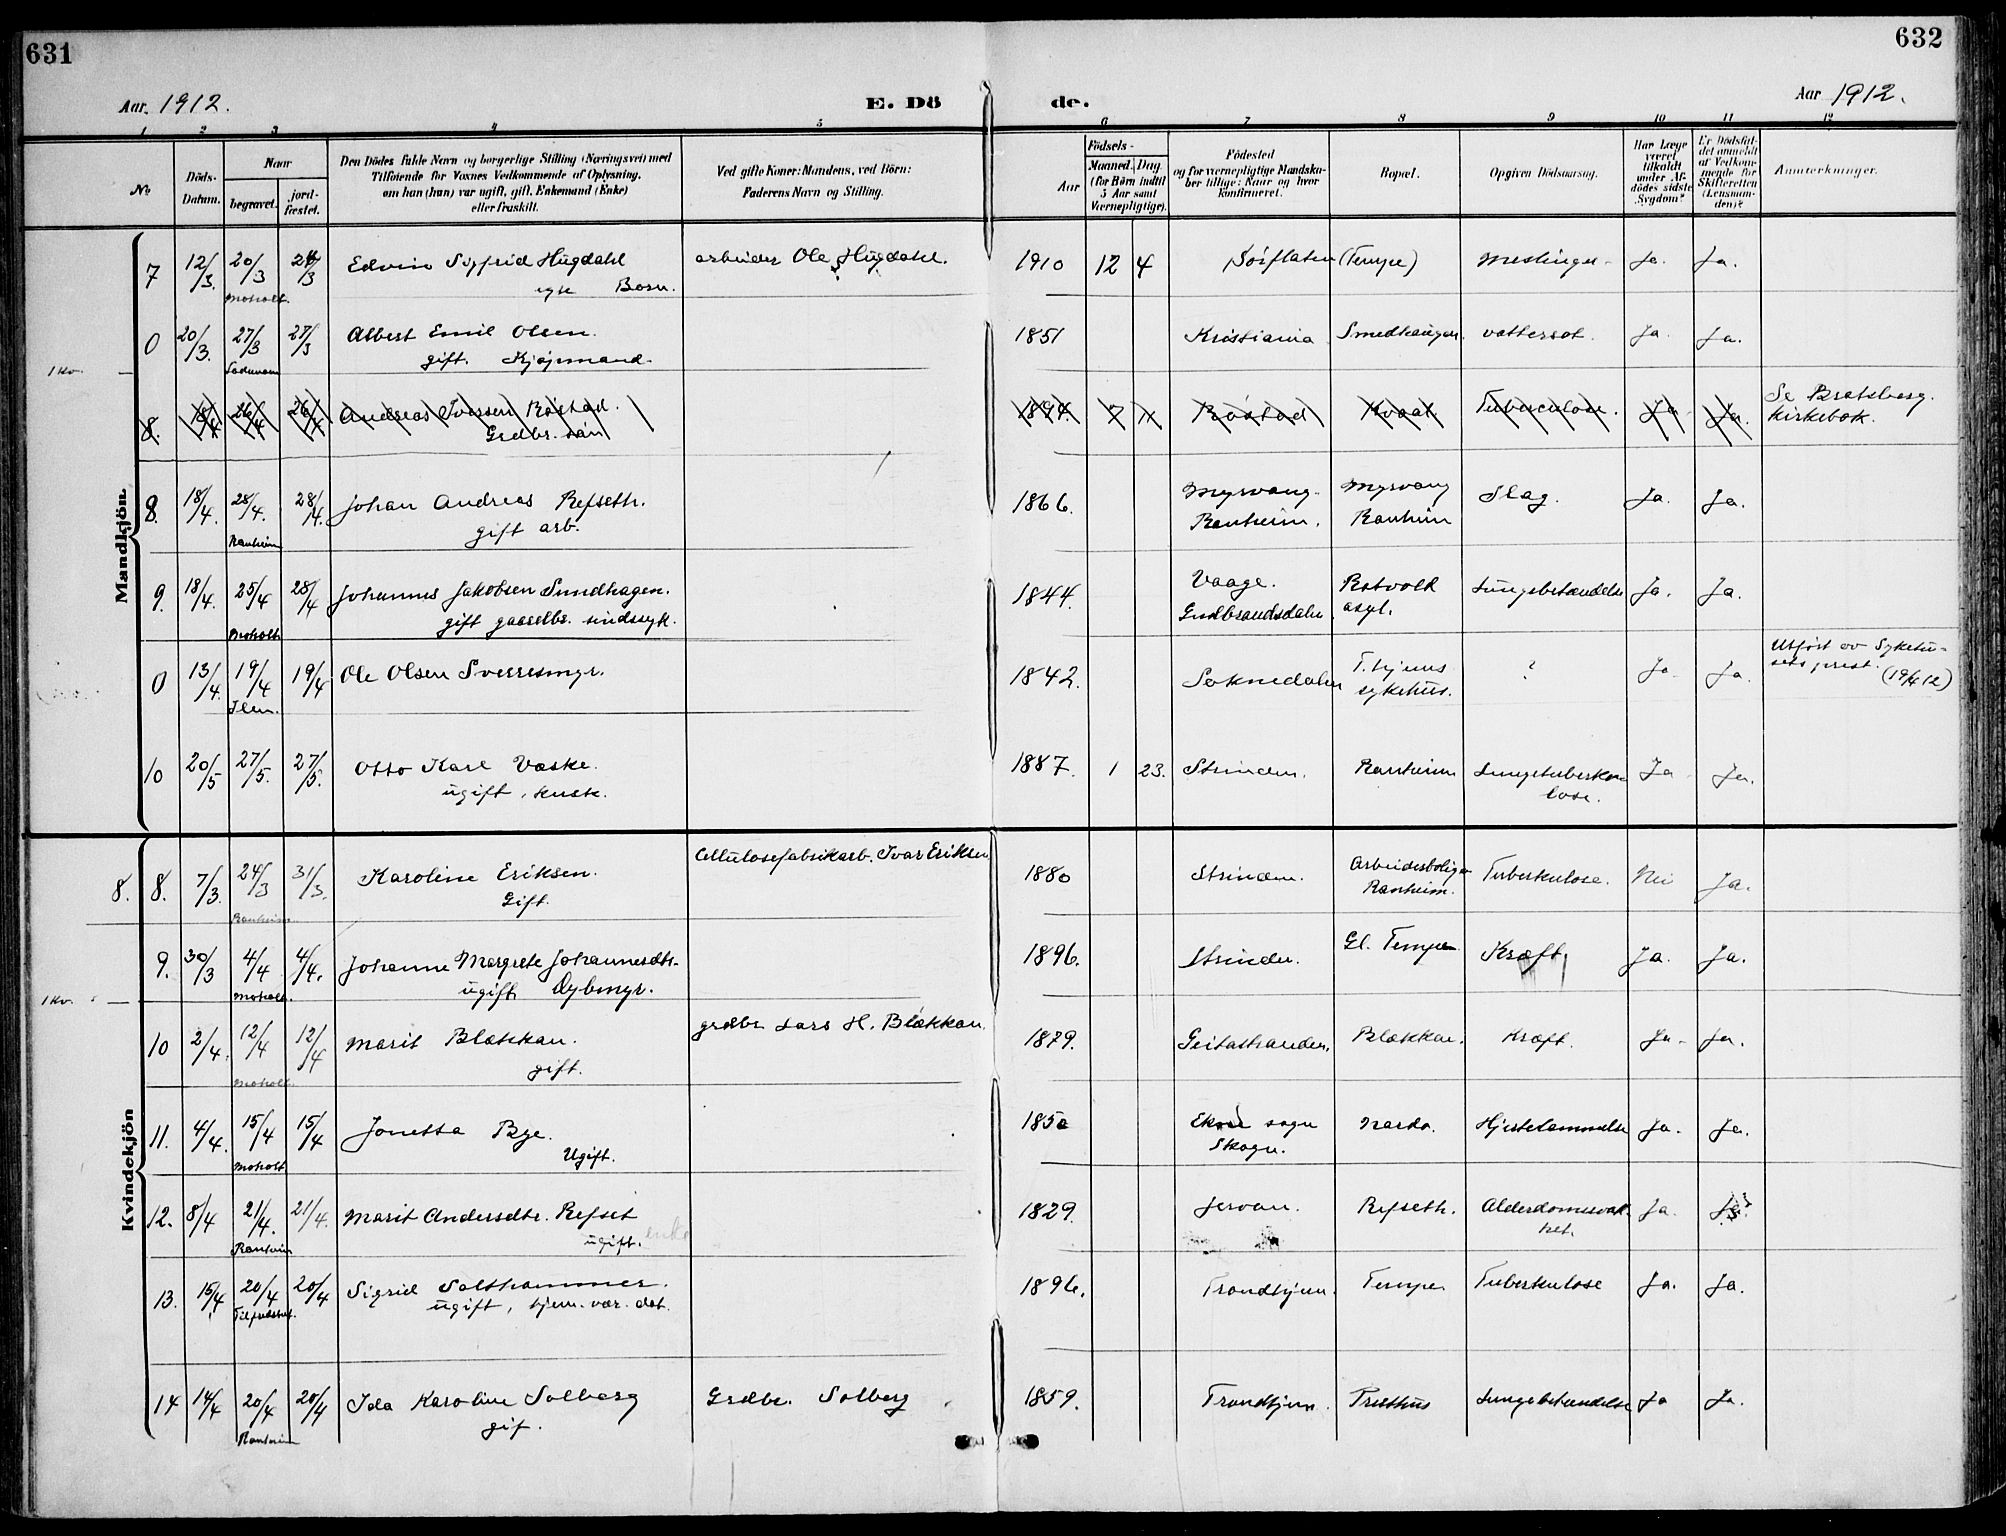 631
632
Aar. 1912.
E. Dö de.
Aar 1912.
1 2 3 4 5 6 7 8 9 10 11 12
No
Döds-Datum.
Naar
begravet.
jord-fæstet.
Den Dödes fulde Navn og borgerlige Stilling (Næringsvei) med
Tilföiende for Voxnes Vedkommende af Oplysning,
om han (hun) var ugift, gift, Enkemand (Enke)
eller fraskilt.
Ved gifte Koner: Mandens, ved Börn:
Faderens Navn og Stilling.
Födsels-
Aar
Maaned. Dag
(for Börn indtil
5 Aar samt
Værnepligtige).
Födested
og for værnepligtige Mandska-
ber tillige: Naar og hvor
konfirmeret.
Bopæl.
Opgiven Dödsaarsag.
Har Læge
været
tilkaldt
under Af-
dödes sidste
Sygdom?
Er Dödsfal-
det anmeldt
af Vedkom-
mende for
Skifteretten
(Lensman-
den)?
Anmerkninger.
Mandkjön.
7 12/3. 20/3 Moholt. 24/3 Edvin Sigfrid Hugdahl arbeider Ole Hugdahl. 1910 12 4 Sörflaten (Tempe) Meslinger Ja. Ja.
egte Barn.
1 kv.
0 20/3. 27/3 27/3 Albert Emil Olsen. 1851 Kristiania Smedhaugen. vattersot. Ja. Ja.
gift. Kjöpmand.
8. 18/4 26/4 26/4 Andreas Iversen Röstad. 1894. 7 11 Röstad Kvaal. Tuberculose. Ja Ja. Se Bratsberg
Grdbr. sön kirkebok.
8. 18/4. 28/4. Ranheim 28/4. Johan Andreas Refseth. 1866. Myrvang Ranheim. Myrvang Ranheim Slag. Ja. Ja.
gift arb.
9. 18/4. 25/4 Moholt 28/4 Johannes Jakobsen Sundhagen. 1844. Vaage. Gudbrandsdalen Rotvold asyl. Lungebetændelse Ja. Ja.
gift gaardbr. sindssyk.
0 13/4. 19/4 Ilen. 19/4 Ole Olsen Sverresmyr. 1842. Soknedalen T.hjems sykehus. ? Ja. Ja. Utfört av Sykehu-
sets prest. (19/4 12)
10 20/5 27/5. 27/5. Otto Karl Væske. 1887. 1 23. Strinden. Ranheim Lungetuberku-
lose. Ja Ja.
ugift, kusk.
Kvindekjön
8. 8. 7/3. 24/3 Ranheim 31/3. Karoline Eriksen. Cellulosefabrikarb. Ivar Eriksen. 1880 Strinden. Arbeiderboliger Ranheim. Tuberkulose. Nei Ja.
Gift.
9. 30/3 4/4 Moholt. 4/4. Johanne Margrete Johannesdtr. 1896. Strinden. Gl. Tempe Kræft. Ja. Ja.
ugift Dybmyr.
1 kv.
10 2/4. 12/4 Moholt 12/4 Marit Blækkan. grdbr. Lars H. Blækkan. 1879. Geitastranden. Blækkan. Kræft. Ja. Ja.
gift.
11. 4/4. 15/4 Moholt 15/4 Jonetta Bye. 1850 Ekne sogn Skogn. Nardo. Hjertelammelse Ja. Ja.
Ugift.
12. 8/4 21/4. Ranheim 21/4. Marit Andersdtr. Refset 1829. Jervan. Refseth. Alderdomssvak-
het. Ja. Ja?
ugift. enke
13. 15/4 20/4 20/4 Sigrid Salthammer. 1896. Trondhjem. Tempe Tuberkulose Ja. Ja.
ugift, hjem. vær. dat.
14 14/4 20/4 Ranheim 20/4 Ida Karoline Solberg Grdbr. Solberg 1859. Trondhjem. Presthus Lungebetændelse Ja Ja.
gif.